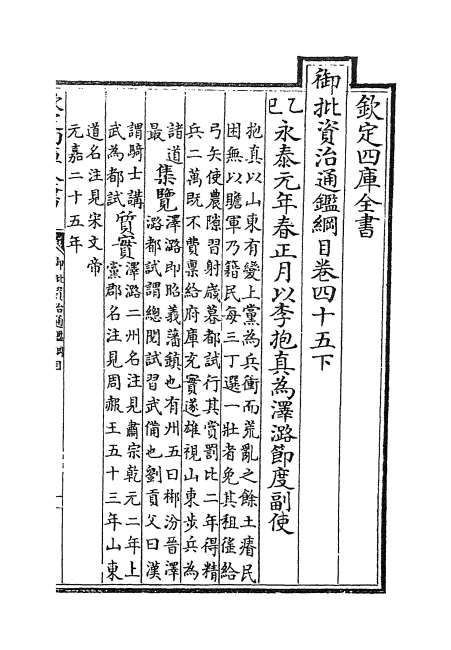 欽定四庫全書
御批資治通鑑綱目卷四十五下
乙巳永泰元年春正月以李抱真為澤潞節度副使
抱真以山東有變上黨為兵衝而荒亂之餘土瘠民
困無以贍軍乃籍民每三丁選一壯者免其租徭給
弓矢使農隙習射歲暮都試行其賞罰比二年得精
兵二萬既不費禀給府庫充實遂雄視山東步兵為
諸道最
集覽
澤潞即昭義藩鎮也有州五曰郴汾晉澤
潞都試謂總閱試習武備也劉貢父曰漢
謂騎士講
武為都試
質實
澤潞二州名注見肅宗乾元二年上
黨郡名注見周赧王五十三年山東
道名注見宋文帝
元嘉二十五年
御批資治通鑑綱目
一